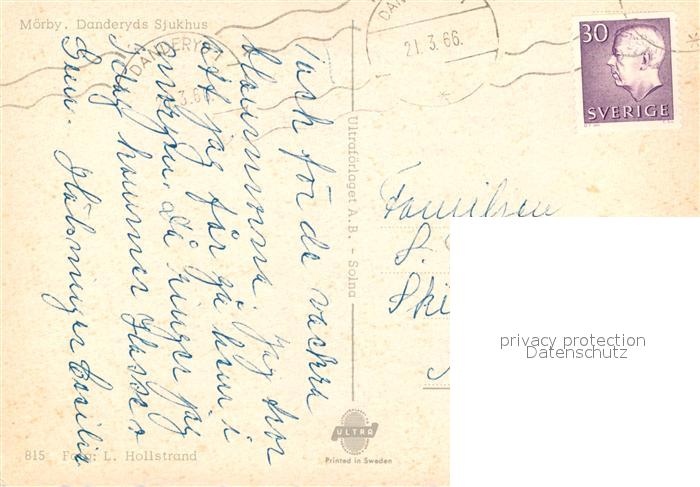 Mörby. Danderyds Sjukhus
DANDERYD
3.66
DAN
21.3.66.
30
SVERIGE
Tack för de vackra
blommorna. Jag tror
att jag får gå hem i
morgon. Då ringer jag
Idag kommer Hasse o
Hälsningar Cecilia
Ultraförlaget A.B. - Solna
Familjen
S.
Ski
privacy protection
Datenschutz
ULTRA
Printed in Sweden
815 Foto: L. Hollstrand